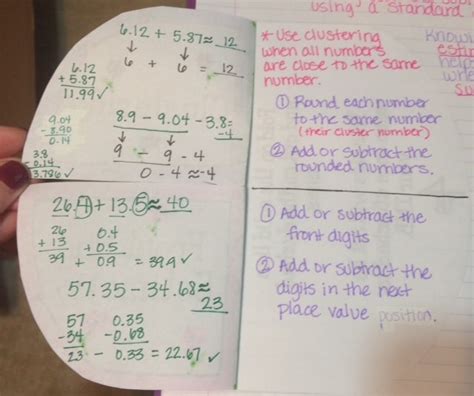 using a standard
6.12 + 5.87 ≈ 12
↓ ↓
6 + 6 = 12
6.12
+ 5.87
11.99 ✓
8.9 - 9.04 - 3.8 ≈
-4
↓ ↓
9 - 9 - 4
0 - 4 ≈ -4
9.04
- 8.90
0.14
3.8
- 0.14
3.786 ✓
* Use clustering
when all numbers
are close to the same
number.
① Round each number
to the same number
(their cluster number)
② Add or subtract the
rounded numbers.
Knowi
estim
help
26.4 + 13.5 ≈ 40
26
+ 13
39
0.4
+ 0.5
+ 0.9 = 39.9 ✓
57.35 - 34.68 ≈
23
57
- 34
23
0.35
- 0.68
- 0.33 = 22.67 ✓
① Add or subtract the
front digits
② Add or subtract the
digits in the next
place value position.